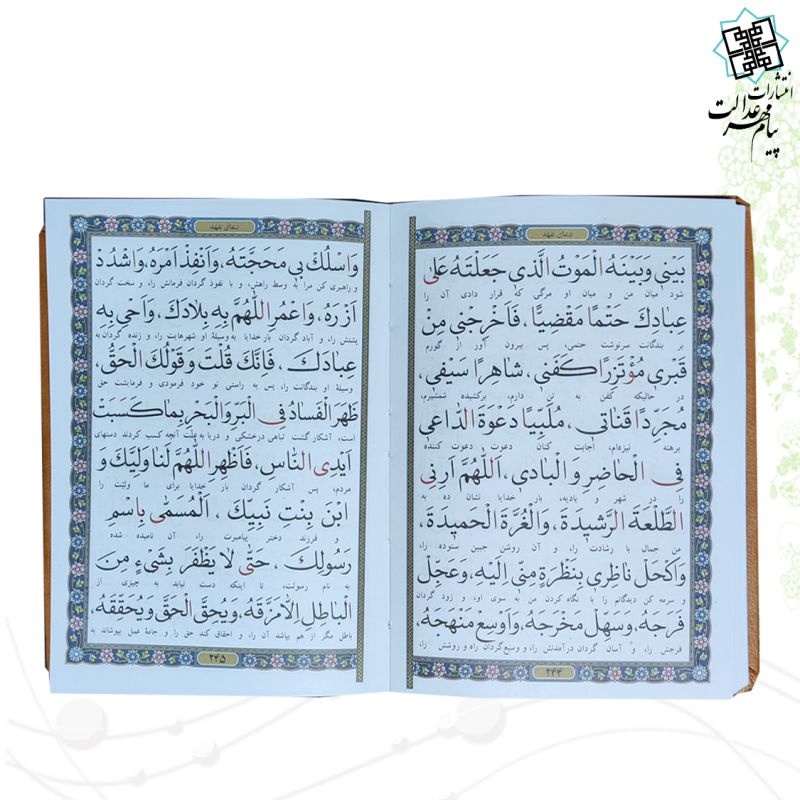 انتشارات
پیام مهر عدالت
دعای عهد
بَيْنِي وَبَيْنَهُ الْمَوْتُ الَّذِي جَعَلْتَهُ عَلَى
شود میان من و میان او مرگی که قرار دادی آن را
عِبَادِكَ حَتْمًا مَقْضِيًّا، فَأَخْرِجْنِي مِنْ
بر بندگانت سرنوشت حتمی، پس بیرون آور از گورم
قَبْرِي مُؤْتَزِرًا كَفَنِي، شَاهِرًا سَيْفِي،
در حالیکه کفن به تن دارم، برکشیده شمشیرم،
مُجَرِّدًا قَنَاتِي، مُلَبِّيًا دَعْوَةَ الدَّاعِي
برهنه نیزه‌ام، اجابت کنان دعوت دعوت کننده
فِي الْحَاضِرِ وَالْبَادِي، اَللّٰهُمَّ اَرِنِي
را در شهر و بادیه، بار خدایا نشان ده به
الطَّلْعَةَ الرَّشِيدَةَ، وَالْغُرَّةَ الْحَمِيدَةَ،
من جمال با رشادت را، و آن روشن جبین ستوده را،
وَاكْحَلْ نَاظِرِي بِنَظْرَةٍ مِنِّي اِلَيْهِ، وَعَجِّلْ
و سرمه کن دیدگانم را با نگاه کردن من به سوی او، و زود گردان
فَرَجَهُ، وَسَهِّلْ مَخْرَجَهُ، وَاَوْسِعْ مَنْهَجَهُ،
فرجش را، و آسان گردان درآمدنش را، و وسیع گردان راه و روشش را،
۲۴۴
دعای عهد
وَاسْلُكْ بِي مَحَجَّتَهُ، وَاَنْفِذْ اَمْرَهُ، وَاشْدُدْ
و راهبری کن مرا به وسط راهش، و با نفوذ گردان فرمانش را، و سخت گردان
اَزْرَهُ، وَاعْمُرِ اللّٰهُمَّ بِهِ بِلَادَكَ، وَاَحْيِ بِهِ
پشتش را، و آباد گردان بار خدایا به وسیلهٔ او شهرهایت را، و زنده گردان به
عِبَادَكَ، فَاِنَّكَ قُلْتَ وَقَوْلُكَ الْحَقُّ،
وسیلهٔ او بندگانت را، پس به راستی تو خود فرمودی و فرمایشت حق
ظَهَرَ الْفَسَادُ فِي الْبَرِّ وَالْبَحْرِ بِمَا كَسَبَتْ
است، آشکار گشت تباهی درخشکی و دریا به علت آنچه کسب کردند دستهای
اَيْدِي النَّاسِ، فَاَظْهِرِ اللّٰهُمَّ لَنَا وَلِيَّكَ وَ
مردم، پس آشکار گردان بار خدایا برای ما ولیت را
ابْنَ بِنْتِ نَبِيِّكَ، اَلْمُسَمّٰى بِاسْمِ
و فرزند دختر پیامبرت را، آن نامیده شده
رَسُولِكَ، حَتّٰى لَا يَظْفَرَ بِشَيْءٍ مِنَ
به نام رسولت، تا اینکه دست نیابد به چیزی از
الْبَاطِلِ اِلَّا مَزَّقَهُ، وَيُحِقَّ الْحَقَّ وَيُحَقِّقَهُ،
باطل مگر از هم بپاشد آن را، و احقاق کند حق را و جامهٔ عمل بپوشاند به
۲۴۵